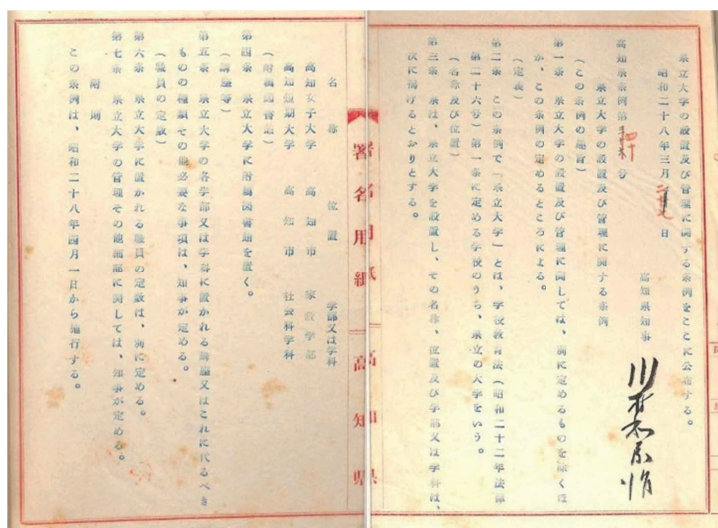 県立大学の設置及び管理に関する条例をここに公布する。
昭和二十八年三月二十 日
高知県知事 川村和嘉治
高知県条例第四十号
県立大学の設置及び管理に関する条例
(この条例の趣旨)
第一条 県立大学の設置及び管理に関しては、別に定めるものを除くほ
か、この条例の定めるところによる。
(定義)
第二条 この条例で「県立大学」とは、学校教育法(昭和二十二年法律
第二十六号)第一条に定める学校のうち、県立の大学をいう。
(名称及び位置)
第三条 県は、県立大学を設置し、その名称、位置及び学部又は学科は、
次に掲げるとおりとする。
署名用紙 高知県
名称 位置 学部又は学科
高知女子大学 高知市 家政学部
高知短期大学 高知市 社会科学科
(附属図書館)
第四条 県立大学に附属図書館を置く。
(講座等)
第五条 県立大学の各学部又は学科に置かれる講座又はこれに代るべき
ものの種類その他必要な事項は、知事が定める。
(職員の定数)
第六条 県立大学に置かれる職員の定数は、別に定める。
第七条 県立大学の管理その他細部に関しては、知事が定める。
附則
この条例は、昭和二十八年四月一日から施行する。